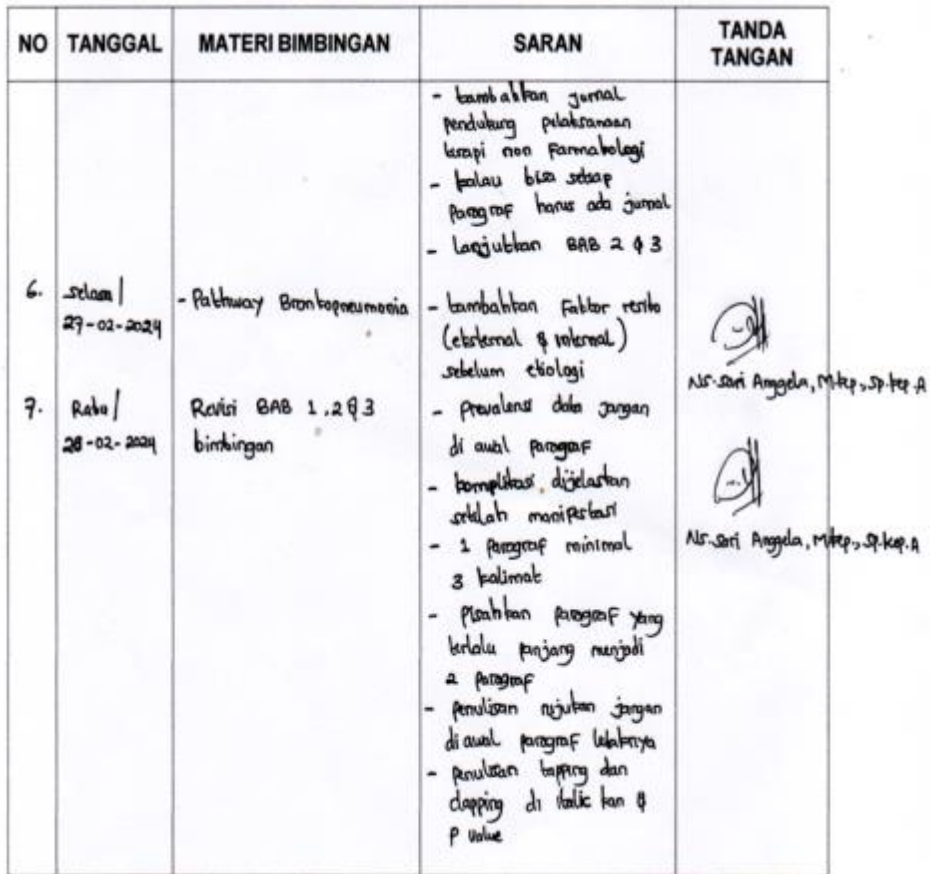 NO TANGGAL MATERI BIMBINGAN SARAN TANDA TANGAN
- tambahkan jurnal
pendukung pelaksanaan
terapi non Farmakologi
- kalau bisa setiap
Paragraf harus ada jurnal
- Lanjutkan BAB 2 & 3
6. Selasa / - Pathway Bronkopneumonia - tambahkan Faktor resiko
27-02-2024 (eksternal & internal)
sebelum etiologi
Ns. Sari Anggela, M.kep., Sp.kep.A
7. Rabu / Revisi BAB 1, 2 & 3 - Prevalensi data jangan
28-02-2024 bimbingan di awal paragraf
- komplikasi dijelaskan
setelah manifestasi
- 1 Paragraf minimal
3 kalimat
Ns. Sari Anggela, M.kep., Sp.kep.A
- Pisahkan paragraf yang
terlalu panjang menjadi
2 Paragraf
- Penulisan rujukan jangan
di awal paragraf letaknya
- Penulisan tapping dan
clapping di italic kan &
P value